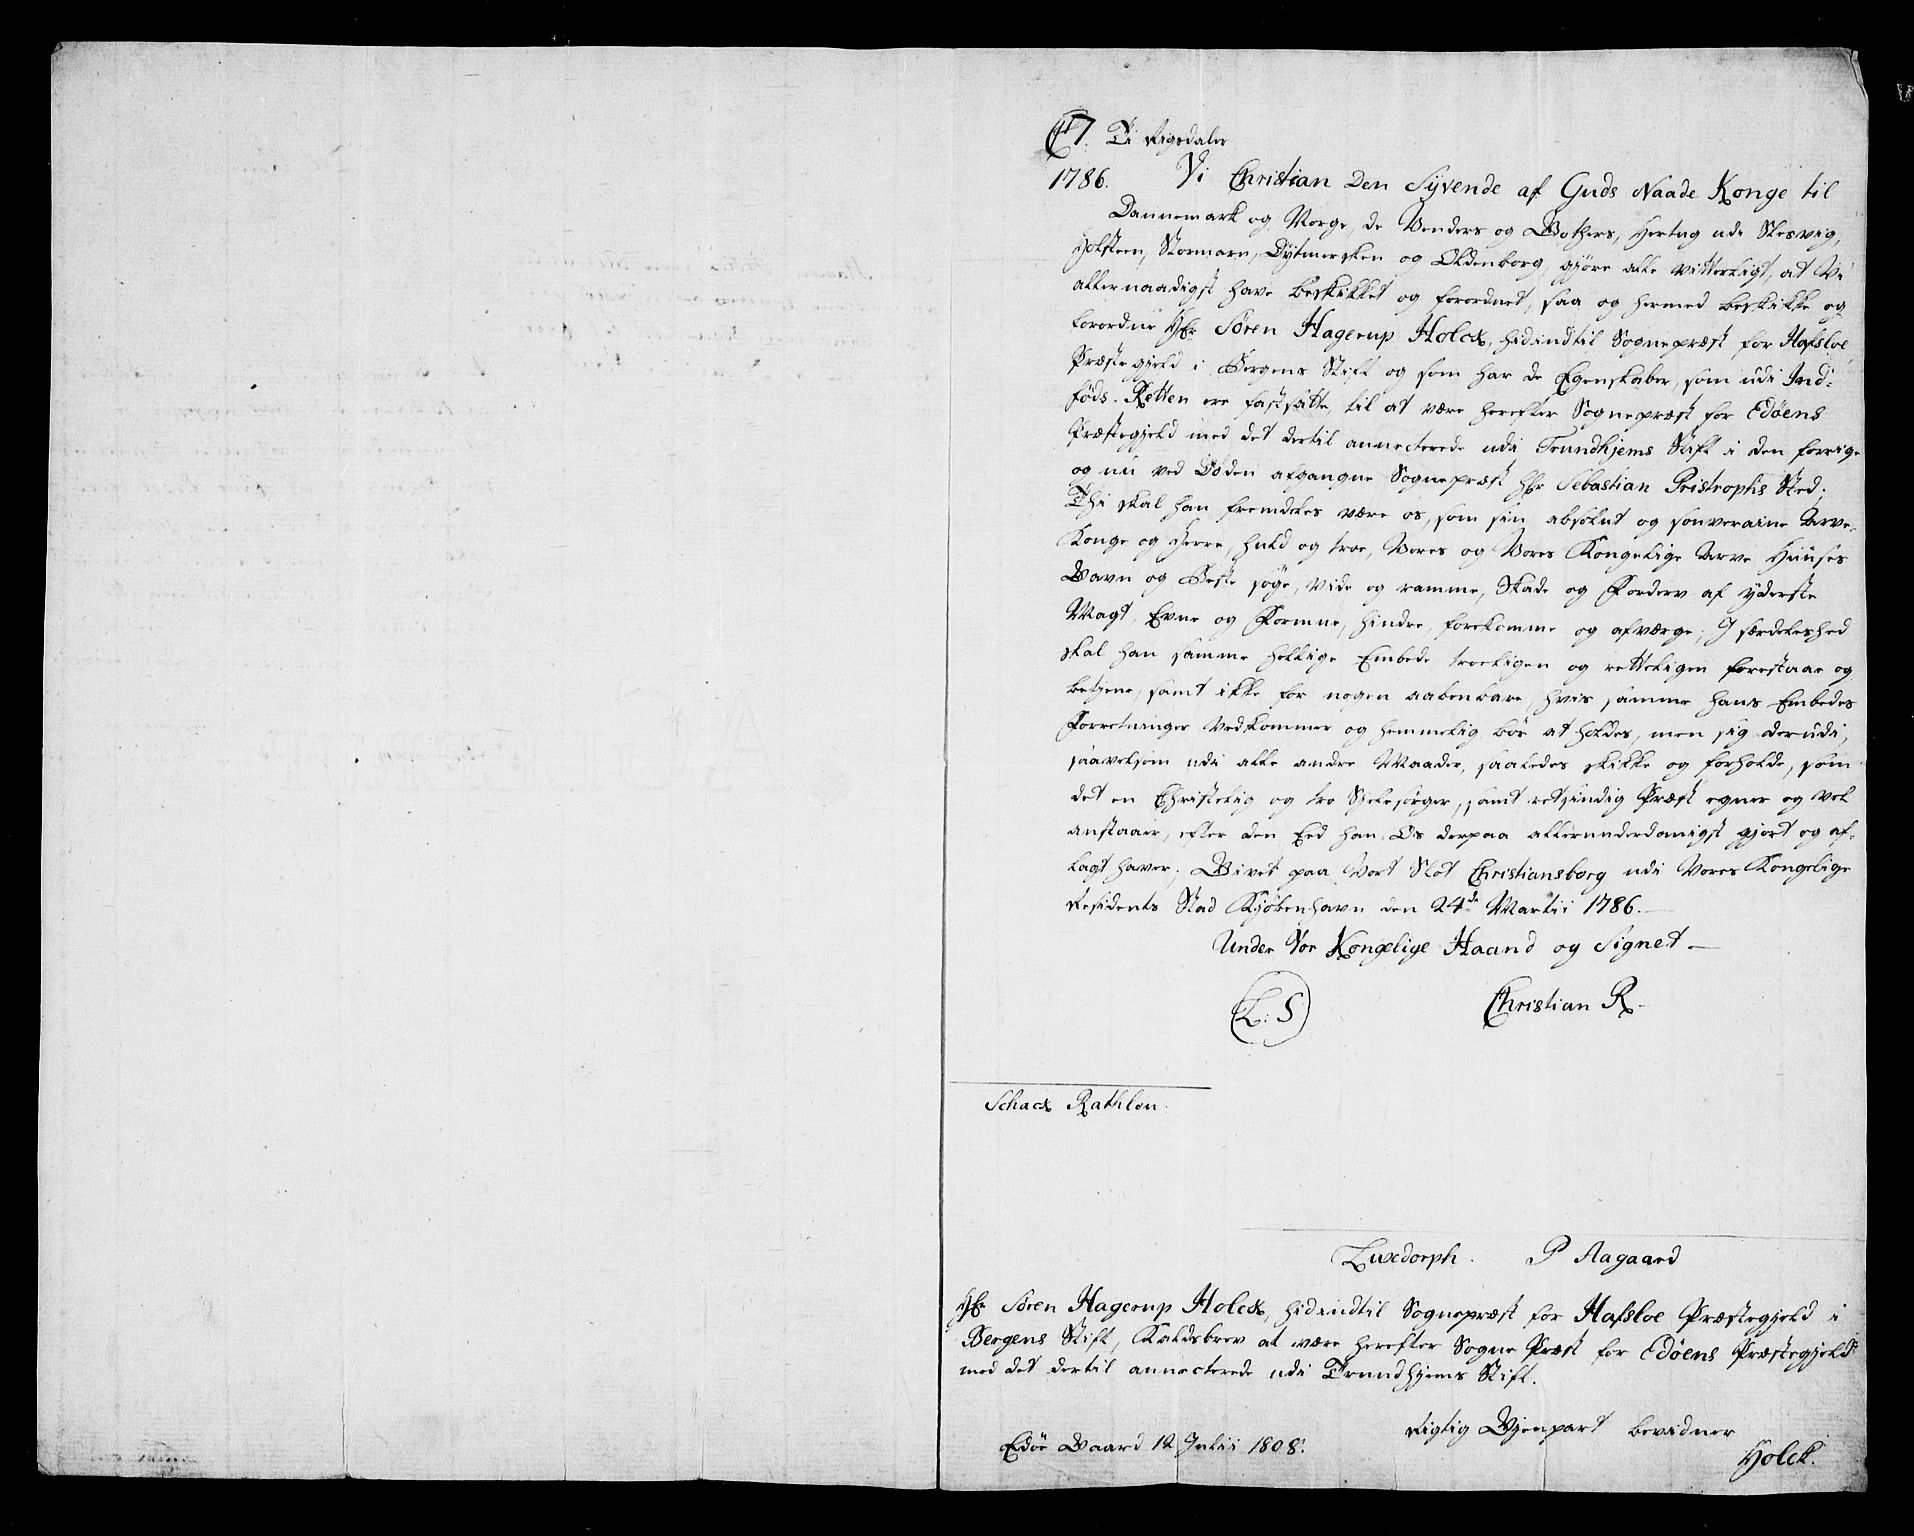 C7. Ti Rigsdaler
1786. Vi Christian Den Syvende af Guds Naade Konge til
Dannemark og Norge, de Venders og Gothers, Hertug udi Slesvig,
Holsteen, Stormarn, Dytmersken og Oldenborg, gjøre alle vitterligt, at Vi
allernaadigst have beskikket og forordnet, saa og hermed beskikke og
forordne Hr. Søren Hagerup Holck, hidindtil Sognepræst for Hafsloe
Præstegjeld i Bergens Stift og som har de Egenskaber, som udi Ind-
føds-Retten ere fastsatte, til at være herefter Sognepræst for Edøens
Præstegjeld med det dertil annecterede udi Trundhjems Stift i den forrige
og nu ved Døden afgangne Sognepræst Hr. Sebastian Pristrophs Sted;
Thi skal han fremdeles være os, som sin absolut og souveraine Arve-
Konge og Herre, huld og troe, Vores og Vores Kongelige Arve Huuses
Gavn og Beste søge, vide og ramme, Skade og Forderv af yderste
Magt, Evne og Formue, hindre, forekomme og afværge; I særdeleshed
skal han samme hellige Embede troeligen og retteligen forestaae og
betjene, samt ikke for nogen aabenbare, hvis samme hans Embedes
Forretninger vedkommer og hemmelig bør at holdes, men sig derudi,
saavelsom udi alle andre Maader, saaledes skikke og forholde, som
det en Christelig og tro Sjelesørger, samt retsindig Præst egner og vel
anstaaer, efter den Eed han Os derpaa allerunderdanigst gjort og af-
lagt haver; Givet paa Vort Slot Christiansborg udi Vores Kongelige
Residents Stad Kjøbenhavn den 24de Martii 1786.
Under Vor Kongelige Haand og Signet
(L:S) Christian R.
Schack Rathlou.
Luxdorph. P Aagaard
Hr. Søren Hagerup Holck, hidindtil Sognepræst for Hafsloe Præstegjeld i
Bergens Stift, Kaldsbrev at være herefter Sogne Præst for Edøens Præstegjeld
med det dertil annecterede udi Trundhjems Stift.
Rigtig Gjenpart bevidner
Edøe Gaard 12 Julii 1808. Holck.